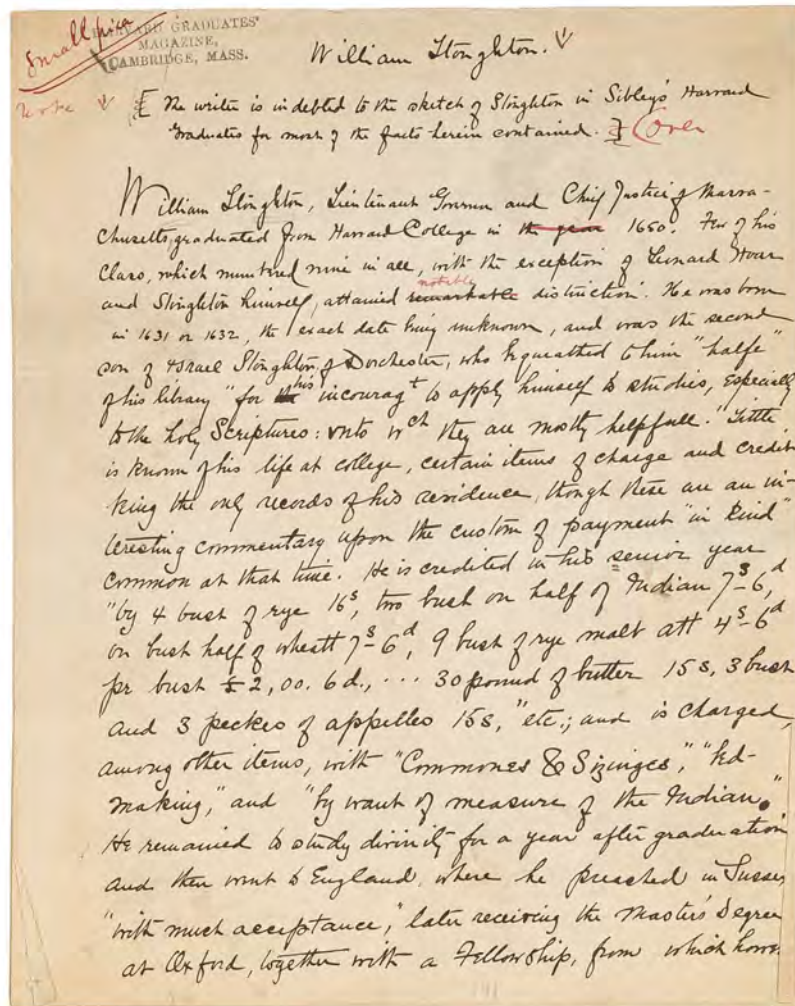 Small pica
HARVARD GRADUATES'
MAGAZINE,
CAMBRIDGE, MASS.
William Stoughton.
note [ The writer is indebted to the sketch of Stoughton in Sibley's Harvard
Graduates for most of the facts herein contained. ] (Over
William Stoughton, Lieutenant Governor and Chief Justice of Massa-
chusetts, graduated from Harvard College in the year 1650. Few of his
Class, which numbered nine in all, with the exception of Leonard Hoar
notable
and Stoughton himself, attained remarkable distinction. He was born
in 1631 or 1632, the exact date being unknown, and was the second
son of Israel Stoughton of Dorchester, who bequeathed to him "halfe"
of his library "for his incouragt to apply himself to studies, especially
to the holy Scriptures: vnto wch they are mostly helpfull." Little
is known of his life at college, certain items of charge and credit
being the only records of his residence, though these are an in-
teresting commentary upon the custom of payment "in kind"
common at that time. He is credited in his senior year
"by 4 bush of rye 16s, two bush on half of Indian 7s-6d,
on bush half of wheatt 7s-6d, 9 bush of rye malt att 4s-6d
pr bush £2,00. 6d., ... 30 pound of butter 15s, 3 bush
and 3 peckes of appelles 15s," etc.; and is charged,
among other items, with "Commones & Sizinges", "bed-
making," and "by want of measure of the Indian."
He remained to study divinity for a year after graduation
and then went to England, where he preached in Sussex
"with much acceptance," later receiving the Master's Degree
at Oxford, together with a Fellowship, from which howe